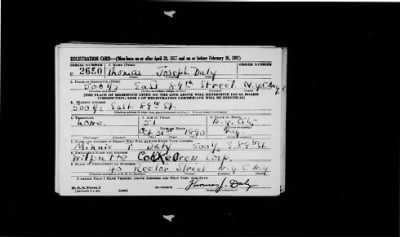 REGISTRATION CARD—(Men born on or after April 28, 1877 and on or before February 16, 1897)
SERIAL NUMBER 1. NAME (Print) ORDER NUMBER
2650 Thomas Joseph Daly
2. PLACE OF RESIDENCE (Print)
500 East 88th Street N.Y.C. N.Y.
[THE PLACE OF RESIDENCE GIVEN ON THE LINE ABOVE WILL DETERMINE LOCAL BOARD
JURISDICTION; LINE 2 OF REGISTRATION CERTIFICATE WILL BE IDENTICAL]
3. MAILING ADDRESS
East 88th St.
4. TELEPHONE 5. AGE IN YEARS 6. PLACE OF BIRTH
None 51 N.Y. City
DATE OF BIRTH
Oct 1890 N.Y.
7. NAME AND ADDRESS OF PERSON WHO WILL ALWAYS KNOW YOUR ADDRESS
Minnie Daly E. 88th St.
8. EMPLOYER'S NAME AND ADDRESS
Wilputte Coke Oven Corp.
9. PLACE OF EMPLOYMENT OR BUSINESS
40 Rector Street N.Y.C. N.Y.
I AFFIRM THAT I HAVE VERIFIED ABOVE ANSWERS AND THAT THEY ARE TRUE.
Thomas J. Daly